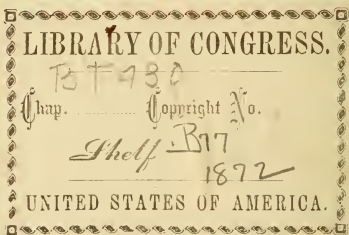 LIBRARY OF CONGRESS.
BT 430
Chap. Copyright No.
Shelf .B17
1872
UNITED STATES OF AMERICA.